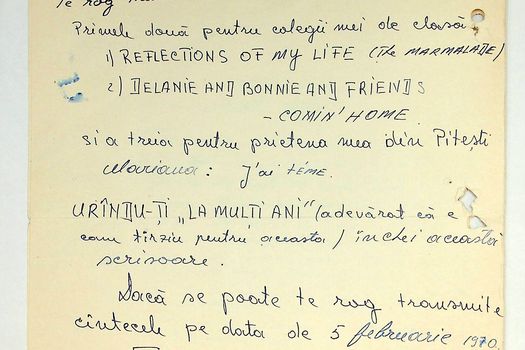 Te rog
Primele două pentru colegii mei de clasă
1) REFLECTIONS OF MY LIFE (The MARMALADE)
2) DELANIE AND BONNIE AND FRIENDS
- COMIN' HOME
și a treia pentru prietena mea din Pitești
Mariana: J'ai téme.
URÎNDU-ȚI „LA MULTI ANI" (adevărat că e
cam tîrziu pentru aceasta) închei această
scrisoare.
Dacă se poate te rog transmite
cîntecele pe data de 5 februarie 1970.